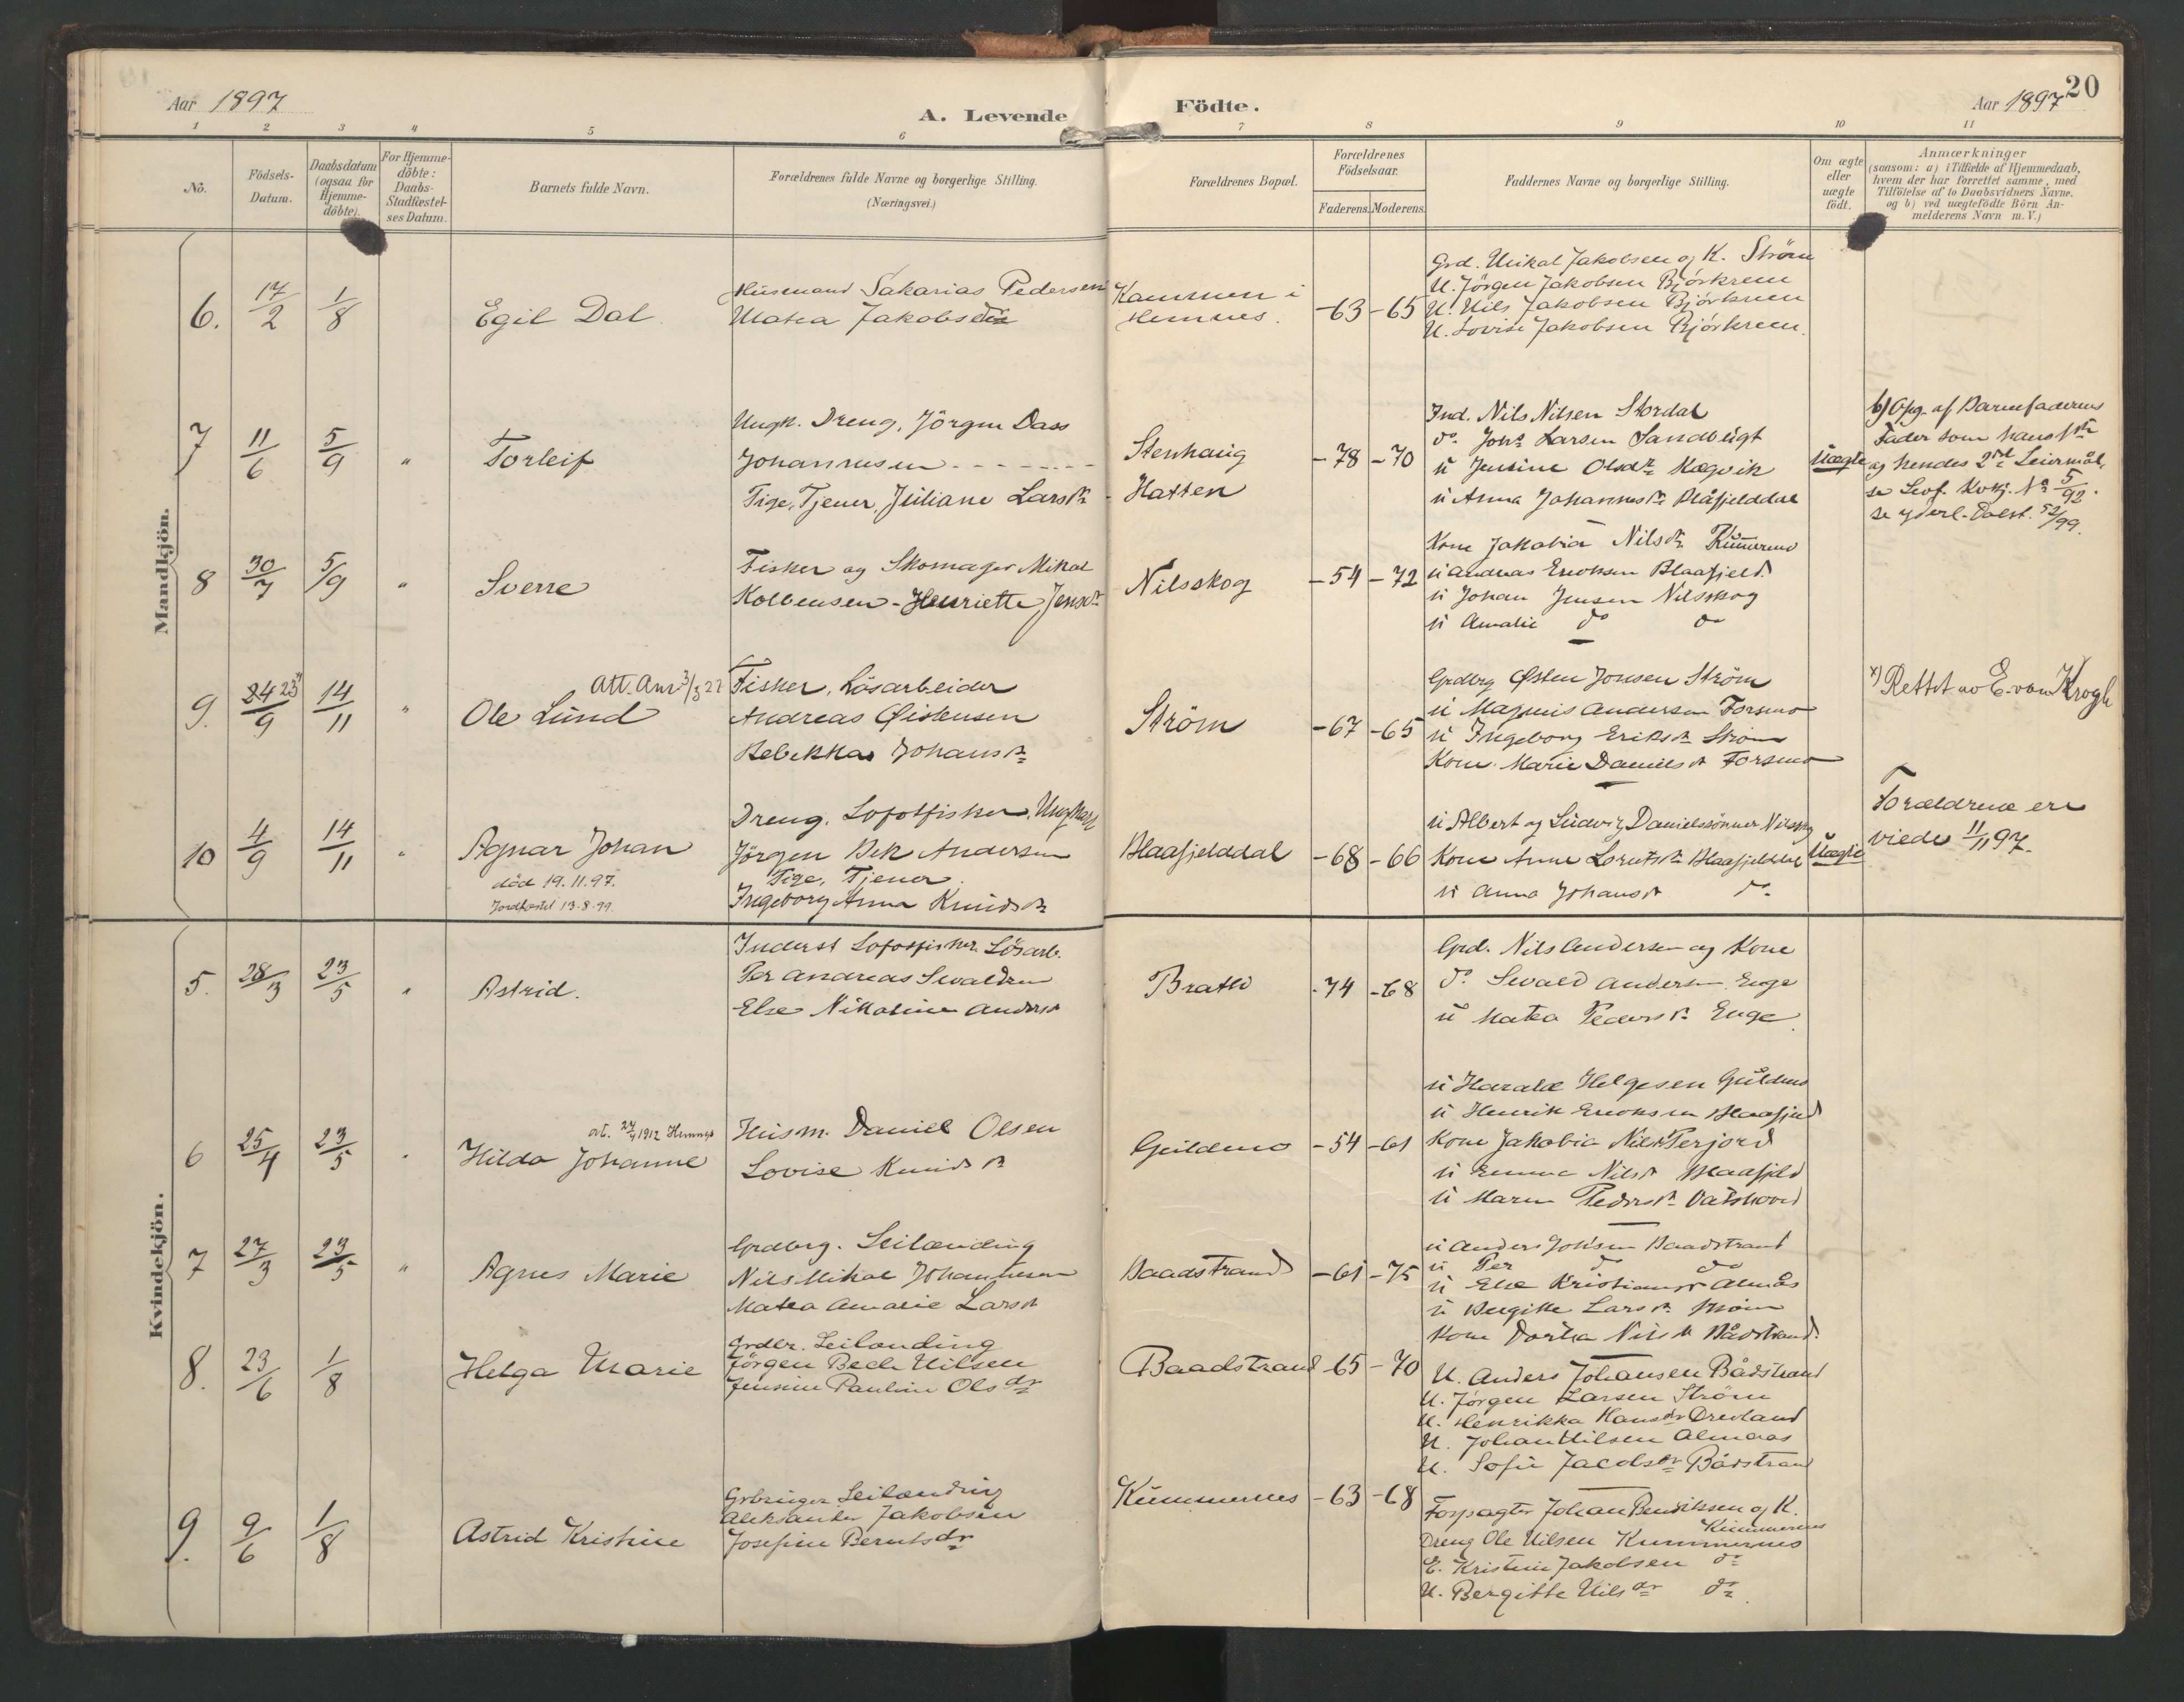 Aar 1897
A. Levende
Födte.
Aar 1897
20
1 2 3 4 5 6 7 8 9 10 11
No.
Födsels-
Datum.
Daabsdatum
(ogsaa for
Hjemme-
döbte).
For Hjemme-
döbte:
Daabs-
Stadfæstel-
ses Datum.
Barnets fulde Navn.
Forældrenes fulde Navne og borgerlige Stilling.
(Næringsvei.)
Forældrenes Bopæl.
Forældrenes
Födselsaar.
Faderens. Moderens.
Faddernes Navne og borgerlige Stilling.
Om ægte
eller
uægte
födt.
Anmærkninger
(saasom: a) i Tilfælde af Hjemmedaab,
hvem der har forrettet samme, med
Tilföielse af to Daabsvidners Navne.
og b) ved uægtefödte Börn An-
melderens Navn m. V.)
Mandkjön.
6. 17/2 1/8
Egil Dal
Husmand Sakarias Pedersen
Matea Jakobsdtr
Kammen i
Hemnes.
-63 -65
Grd. Mikal Jakobsen og K. Ström
U. Jörgen Jakobsen Björkrem
U. Nils Jakobsen Björkrem
U. Lovise Jakobsen Björkrem.
7 11/6 5/9 "
Torleif
Ungk. Dreng, Jörgen Dass
Johannesen
Pige, Tjener, Juliane Larsdtr
Stenhaug
Hatten
-78 -70
Ind. Nils Nilsen Stordal
do Johs Larsen Sandbugt
u Jensine Olsdr
u Anna Johannesdr Blåfjelddal
Uægte
b) Opg. af Barnefaderens
Fader som hans 1ste
og hendes 2det Leiermål,
se Leof. No 5/92.
se yderl. 52/99.
8 30/7 5/9 "
Sverre
Fisker og Skomager Mikal
Kolbensen - Henriette Jensdr
Nilsskog
-54 -72
Kone Jakobia Nilsdr
u Andreas Eriksen Blaafjeld.
u Johan Jensen Nilsskog
u Amalie do do
9. 24/9 23 14/11 "
Att. Anr 3/3 22
Ole Lund
Fisker, Lösarbeider
Andreas Øistensen
Rebekka Johansdr
Ström
-67 -65
Grdbrg Østen Jonsen Ström
u Magnus Andersen Forsmo
u Ingeborg Eriksdr Ström
Kone Marie Danielsdr Forsmo
x) Rettet av E. von Krogh
10 4/9 14/11 "
Agnar Johan
död 19.11.97.
Jordfæstet 13-8-99.
Dreng. Lofotfisker, Ungkarl
Jörgen Bek Andersen
Pige, Tjener.
Ingeborg Anna Knudsdr
Blaafjelddal
-68 -66
u Albert og Ludvig Danielssönner Nilsskog
Kone Anne Lorntsdr Blaafjelddal
u Anna Johansdr do
Uægte
Forældrene ere
viede 11/11 97.
Kvindekjön.
5. 28/3 23/5 "
Astrid.
Inderst Lofotfisker. Lösarb.
Per Andreas Sivaldsen
Else Nikoline Andersdr
Bratli
-74 -68
Grd. Nils Andersen og Kone
do Sivald Andersen Enge
u Matea Pedersdr Enge
6 25/4 23/5 "
at. 24/4 1912
Hilda Johanne
Husm. Daniel Olsen
Lovise Knudsdr
Guldmo
-54 -61
u Harald Helgesen Guldmo
u Henrik Eriksen Blaafjeld
Kone Jakobia Nilsdr Perjord
u Emma Nilsdr Blaafjeld
u Maren Pedersdr Vatshoved
7 27/3 23/5 "
Agnes Marie
Grdbrg. Leilænding
Nils Mikal Johannesen
Matea Amalie Larsdr
Baadstrand
-61 -75
u Anders Johnsen Baadstrand
u Per do do
u Else Kristiansdr Almås
u Bergitte Larsdr Ström
Kone Dortea Nilsdr Bådstrand.
8. 23/6 1/8
Helga Marie
Grdbr. Leilænding
Jörgen Beck Nilsen
Jensine Pauline Olsdr
Baadstrand
-65 -70
U. Anders Johansen Bådstrand
U. Jörgen Larsen Ström
U. Henrikka Hansdr Drevland
U. Johan Nilsen Almaas
U. Sofie Jacobsdr Bådstrand
9. 9/6 1/8
Astrid Kristine
Grbruger Leilænding
Aleksander Jakobsen
Josefine Berntsdr
Kummernes
-63 -68
Forpagter Johan Benriksen og K.
Kummernes
Dreng Ole Nilsen Kummernes
E. Kristine Jakobsen do
U. Bergitte Nilsdr do